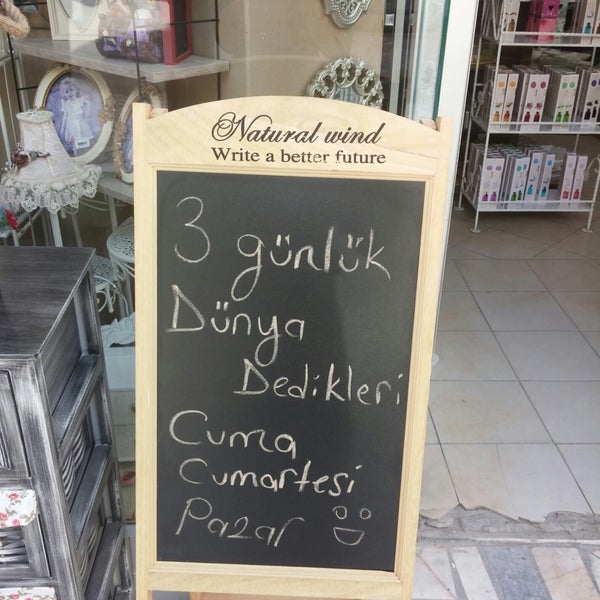 Natural wind
Write a better future
3 günlük
Dünya
Dedikleri
Cuma
Cumartesi
Pazar